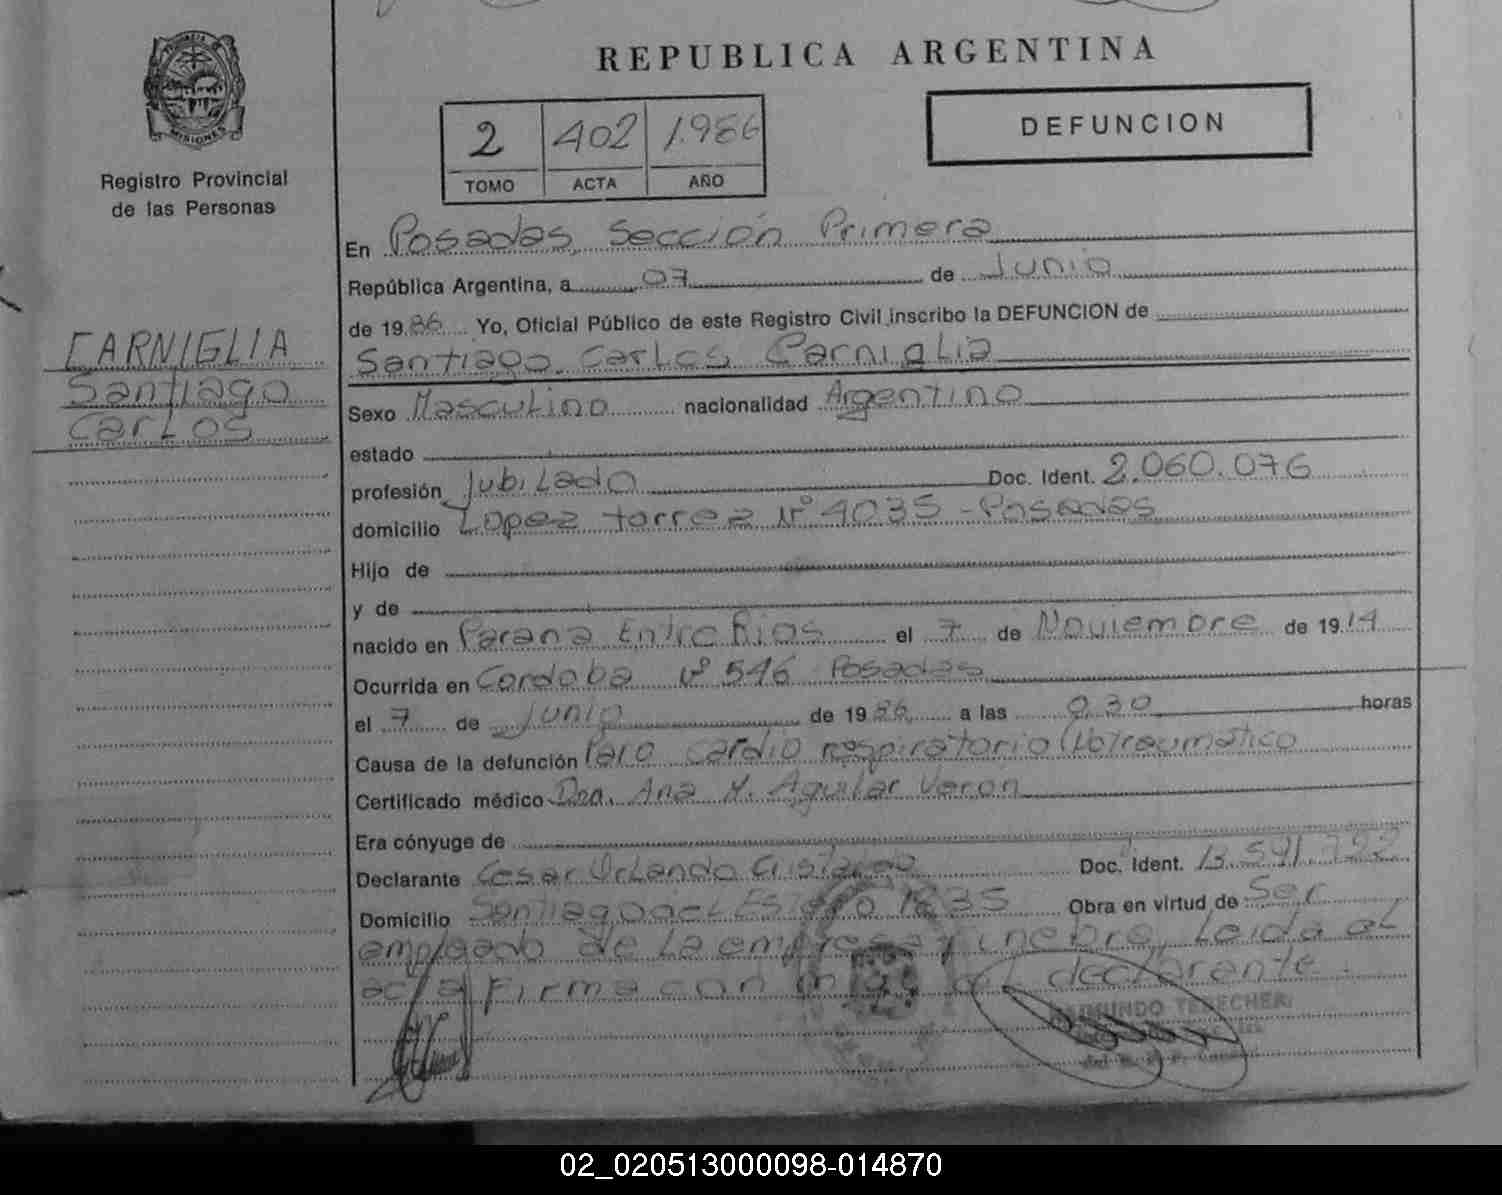 PROVINCIA DE
MISIONES
Registro Provincial
de las Personas
CARNIGLIA
Santiago
Carlos
REPUBLICA ARGENTINA
2 402 1.986
TOMO ACTA AÑO
DEFUNCION
En Posadas, Sección Primera
República Argentina, a 07 de Junio
de 1986 Yo, Oficial Público de este Registro Civil, inscribo la DEFUNCION de
Santiago Carlos Carniglia
Sexo Masculino nacionalidad Argentino
estado
profesión Jubilado Doc. Ident. 2.060.076
domicilio Lopez torrez Nº 4035 - Posadas
Hijo de
y de
nacido en Parana Entre Rios el 7 de Noviembre de 1914
Ocurrida en Cordoba Nº 546 Posadas
el 7 de Junio de 1986 a las 0,30 horas
Causa de la defunción Paro cardio respiratorio No traumatico
Certificado médico Dra. Ana M. Aguilar Veron
Era cónyuge de
Declarante Cesar Orlando Doc. Ident. 13.541.722
Domicilio Santiago del Estero 1835 Obra en virtud de Ser
empleado de la empresa funebre, Leida el
acta firma con migo el declarante.